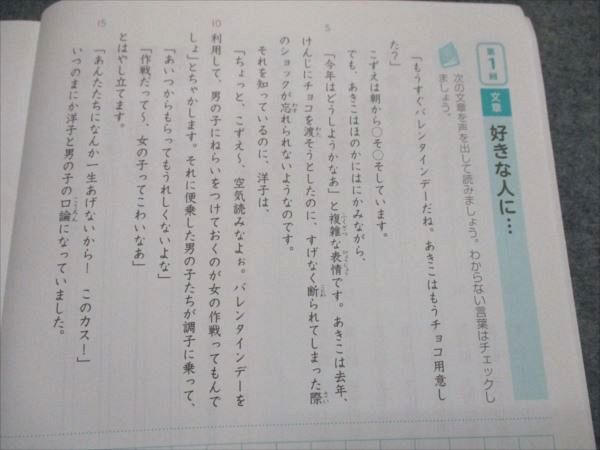 第1回
文章
好きな人に…
次の文章を声を出して読みましょう。わからない言葉はチェックし
ましょう。
「もうすぐバレンタインデーだね。あきこはもうチョコ用意し
た？」
こずえは朝から○そ○そしています。
でも、あきこはほのかにはにかみながら、
5
「今年はどうしようかなあ」と複雑な表情です。あきこは去年、
けんじにチョコを渡そうとしたのに、すげなく断られてしまった際
のショックが忘れられないようなのです。
それを知っているのに、洋子は、
「ちょっと、こずえ〜、空気読みなよぉ。バレンタインデーを
10
利用して、男の子にねらいをつけておくのが女の作戦ってもんで
しょ」とちゃかします。それに便乗した男の子たちが調子に乗って、
「あいつからもらってもうれしくないよな」
「作戦だって〜、女の子ってこわいなあ」
とはやし立てます。
15
「あんたたちになんか一生あげないから！　このカス！」
いつのまにか洋子と男の子の口論になっていました。